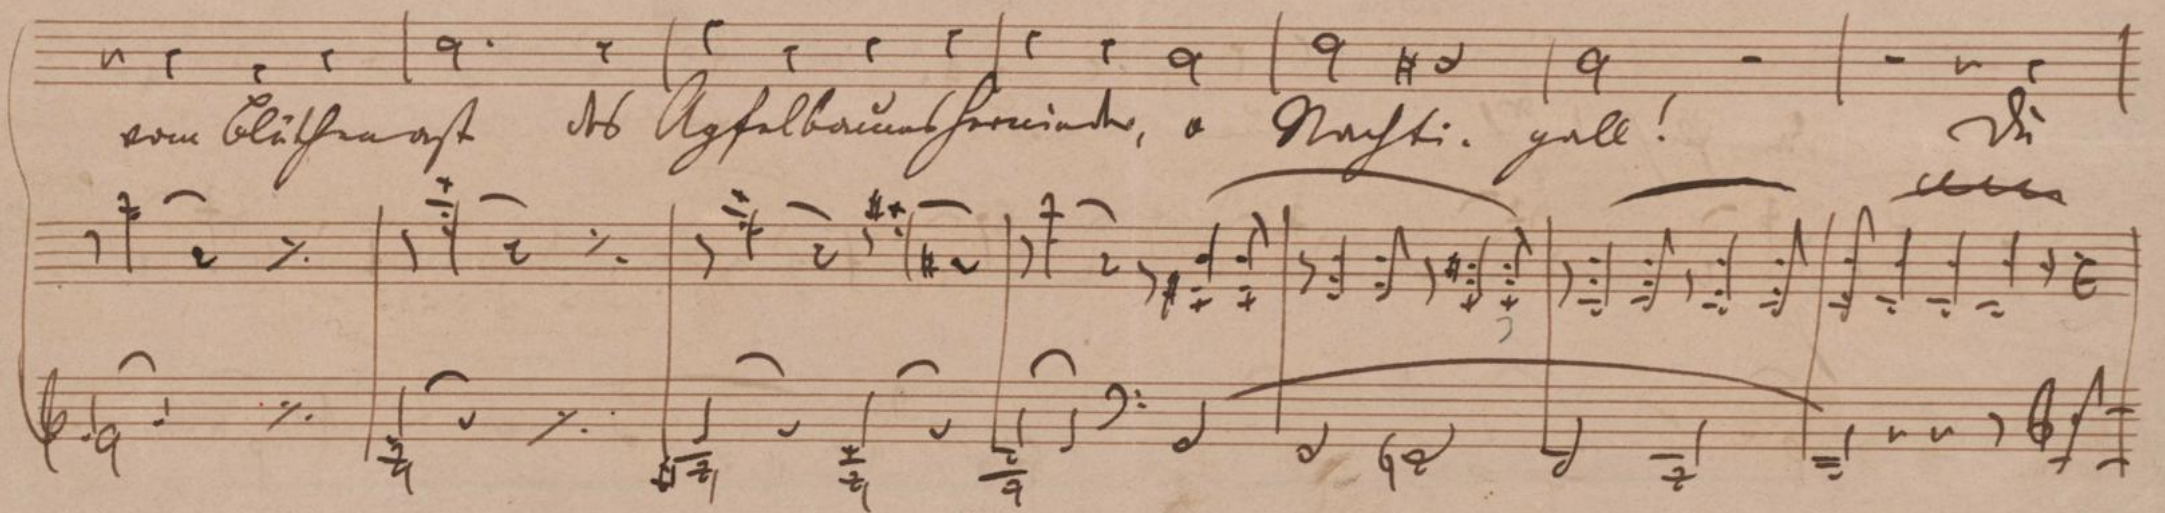 vom Blüthenast des Apfelbaumes hernieder, o Nachti- gall! Du